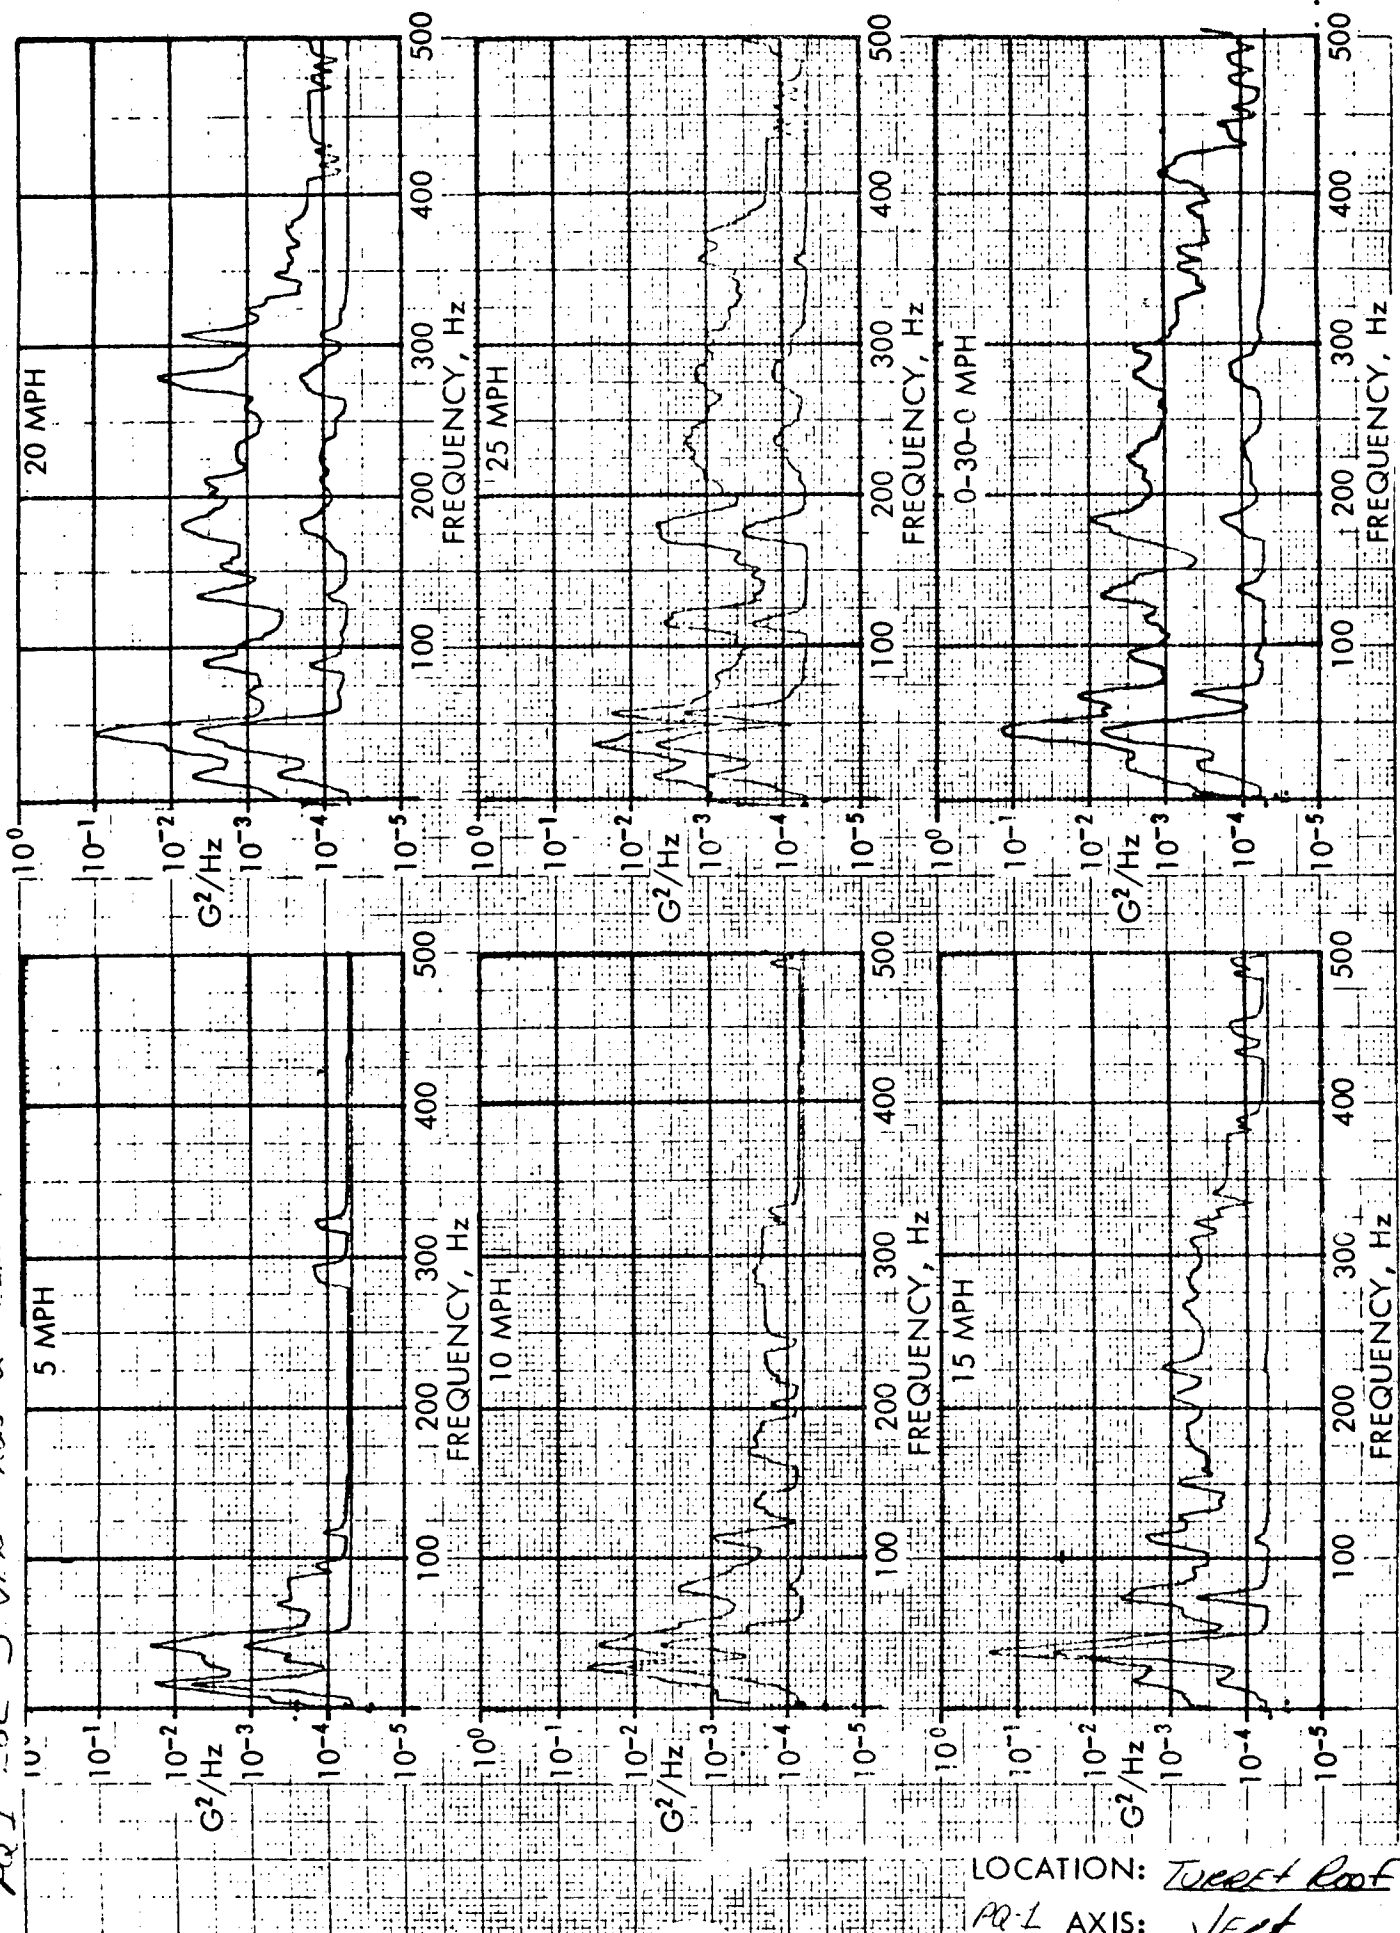 5 MPH
10⁻¹
10⁻²
G²/Hz
10⁻³
10⁻⁴
10⁻⁵
100
200
300
400
500
FREQUENCY, Hz
10 MPH
10⁰
10⁻¹
10⁻²
G²/Hz
10⁻³
10⁻⁴
10⁻⁵
100
200
300
400
500
FREQUENCY, Hz
15 MPH
10⁰
10⁻¹
10⁻²
G²/Hz
10⁻³
10⁻⁴
10⁻⁵
100
200
300
400
500
FREQUENCY, Hz
20 MPH
10⁰
10⁻¹
10⁻²
G²/Hz
10⁻³
10⁻⁴
10⁻⁵
100
200
300
400
500
FREQUENCY, Hz
25 MPH
10⁰
10⁻¹
10⁻²
G²/Hz
10⁻³
10⁻⁴
10⁻⁵
100
200
300
400
500
FREQUENCY, Hz
0-30-0 MPH
10⁰
10⁻¹
10⁻²
G²/Hz
10⁻³
10⁻⁴
10⁻⁵
100
200
300
400
500
FREQUENCY, Hz
LOCATION: Turret Roof
PQ-1 AXIS: Vert